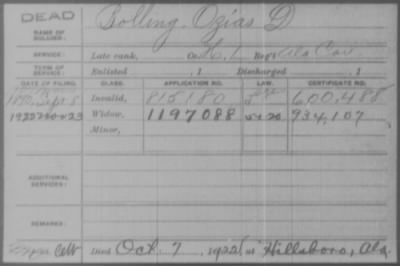 DEAD
NAME OF SOLDIER: Bolling, Ozias D
SERVICE: Late rank, Co. L, Reg't Ala Cav
TERM OF SERVICE: Enlisted , 1 Discharged , 1
DATE OF FILING. CLASS. APPLICATION NO. LAW. CERTIFICATE NO.
1890, Sept 8 Invalid, 815180 600,488
Widow, 1197088 934,107
Minor,
ADDITIONAL SERVICES:
REMARKS:
Died Oct. 7, 1922, at Hillsboro, Ala.